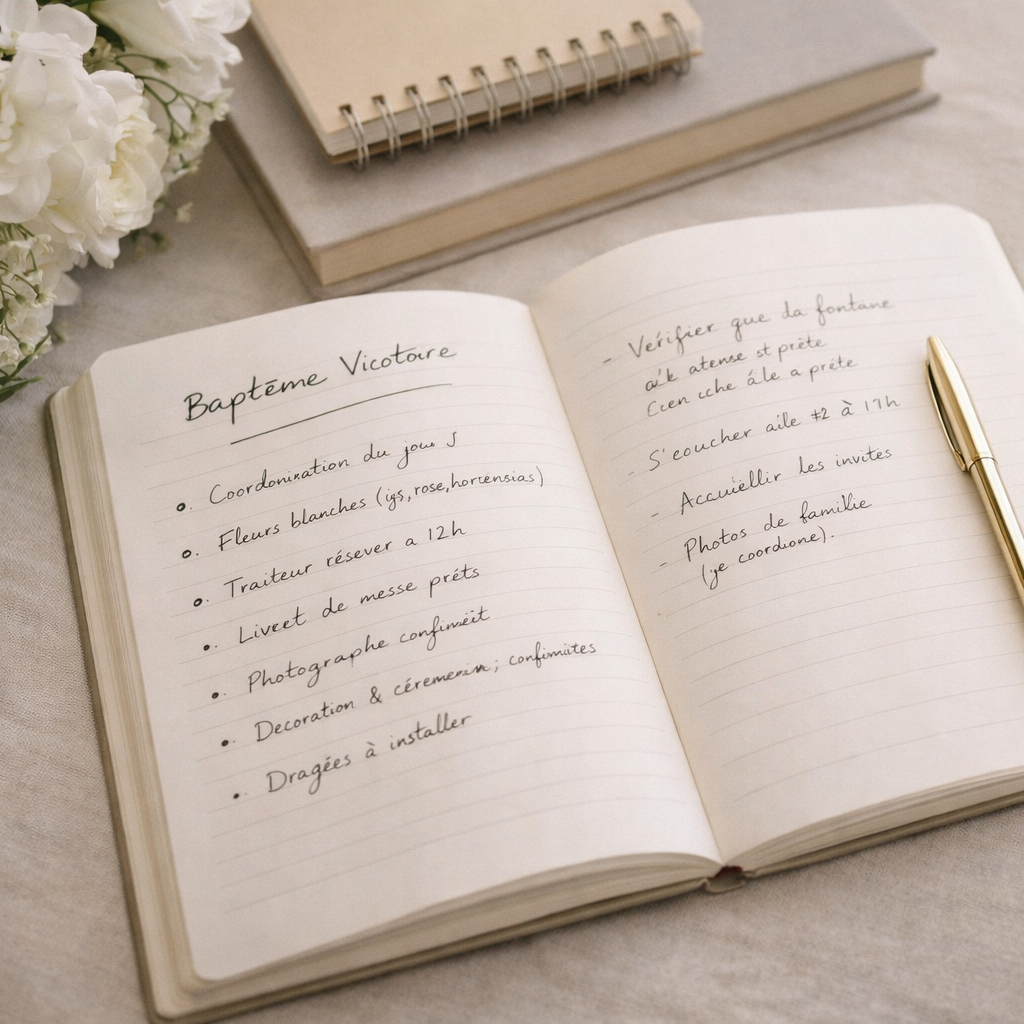 Baptēme Vicotoire
Coordonination du jour J
Fleurs blanches (igs, rose, hortensias)
Traiteur résever a 12h
Livret de messe préts
Photographe confimeit
Decoration & cérémenin; confimites
Dragées à installer
- Vérifier que da fontane
a'k atense st prête
Cien iche âle a prête
- S'eoucher aile #2 à 17h
- Accuiellir les invites
- Photos de familie
(je coordione).